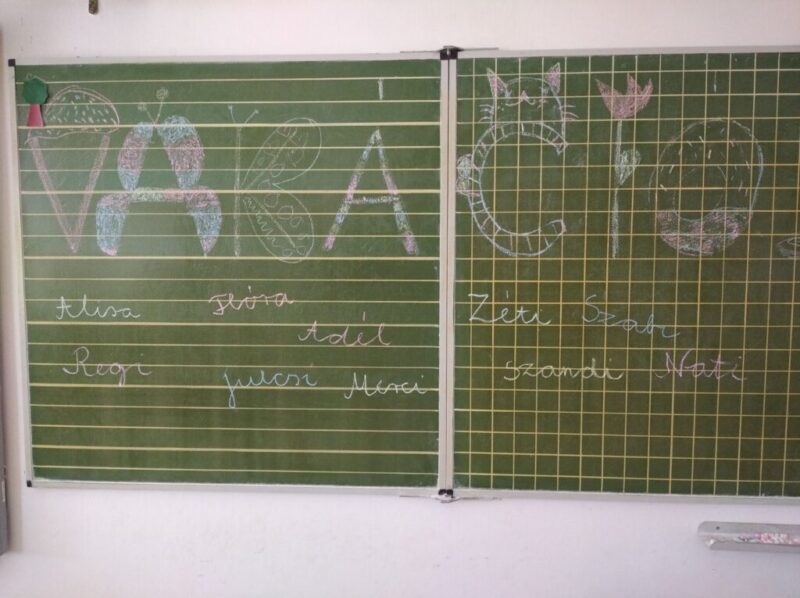 VAKÁCIO
Alisa Flóra
Adél
Regi Julcsi Merci
Zéti Szabi
Szandi Nati